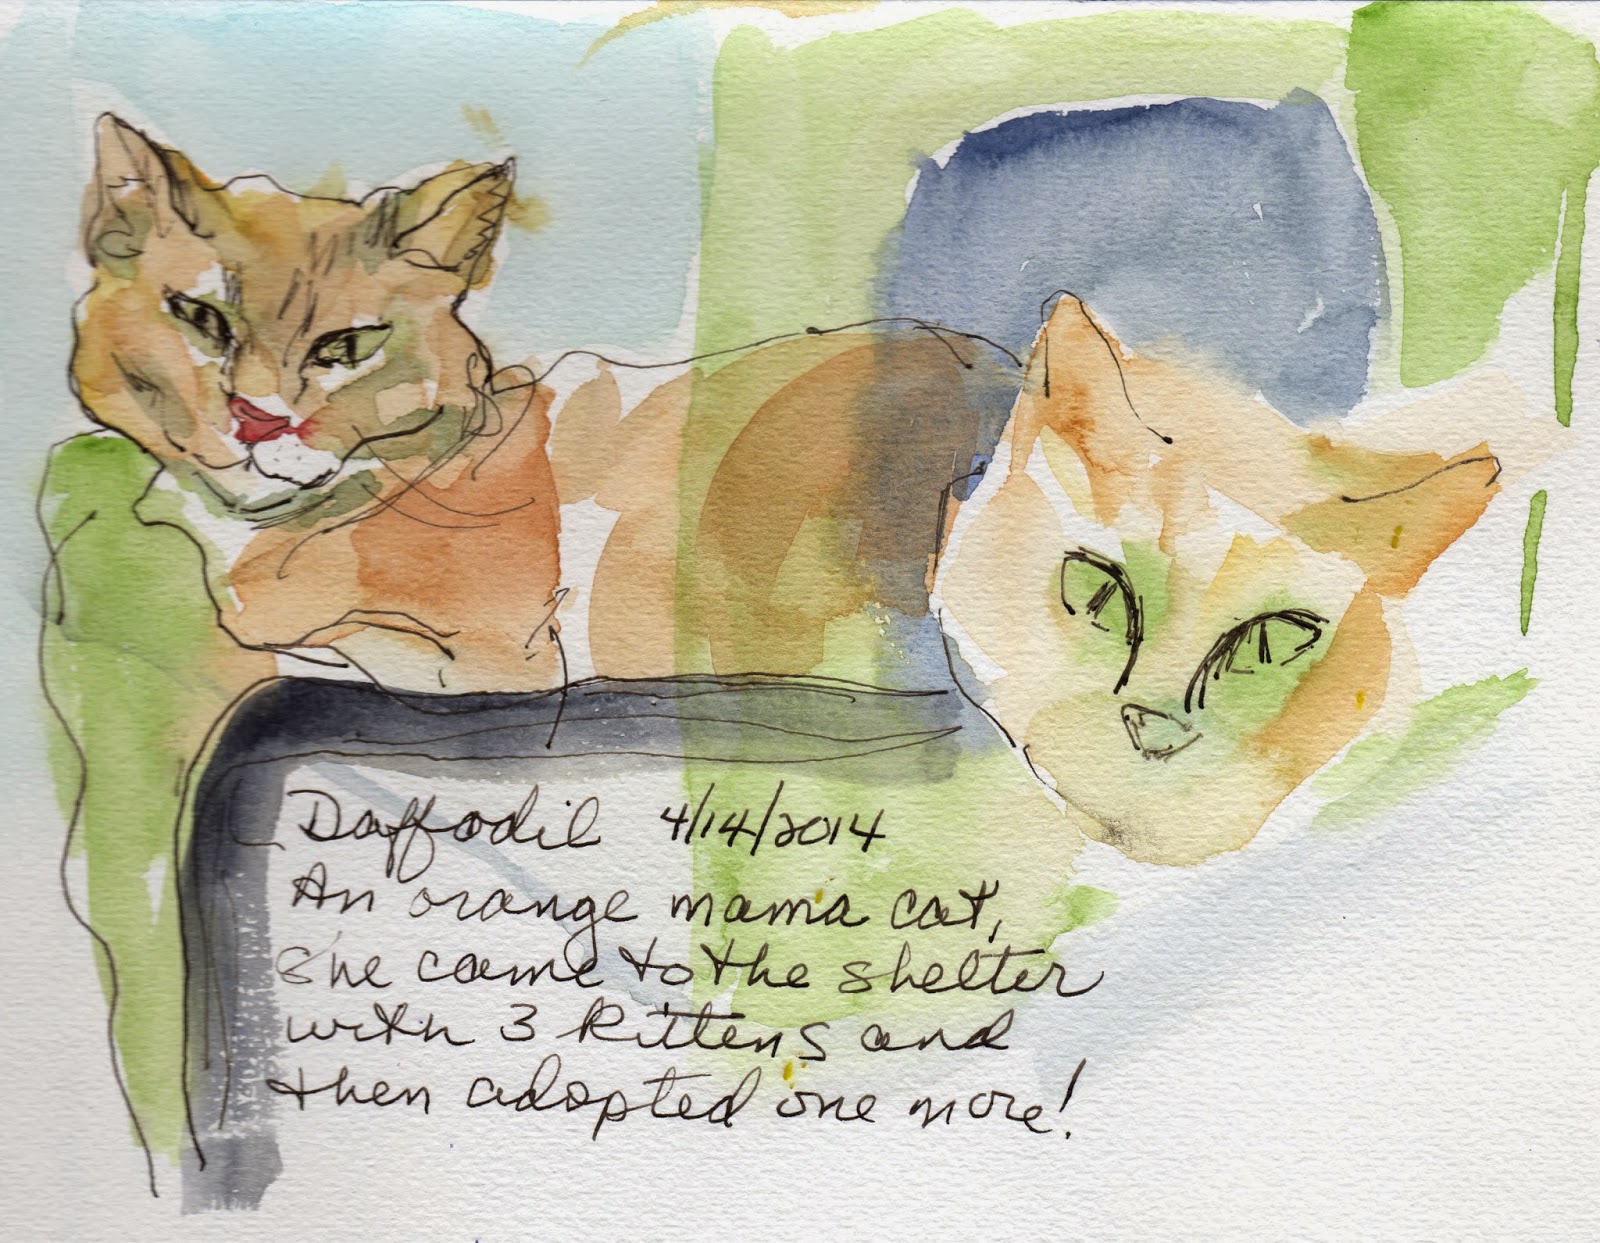 Daffodil 4/14/2014
An orange mama cat,
she came to the shelter
with 3 kittens and
then adopted one more!